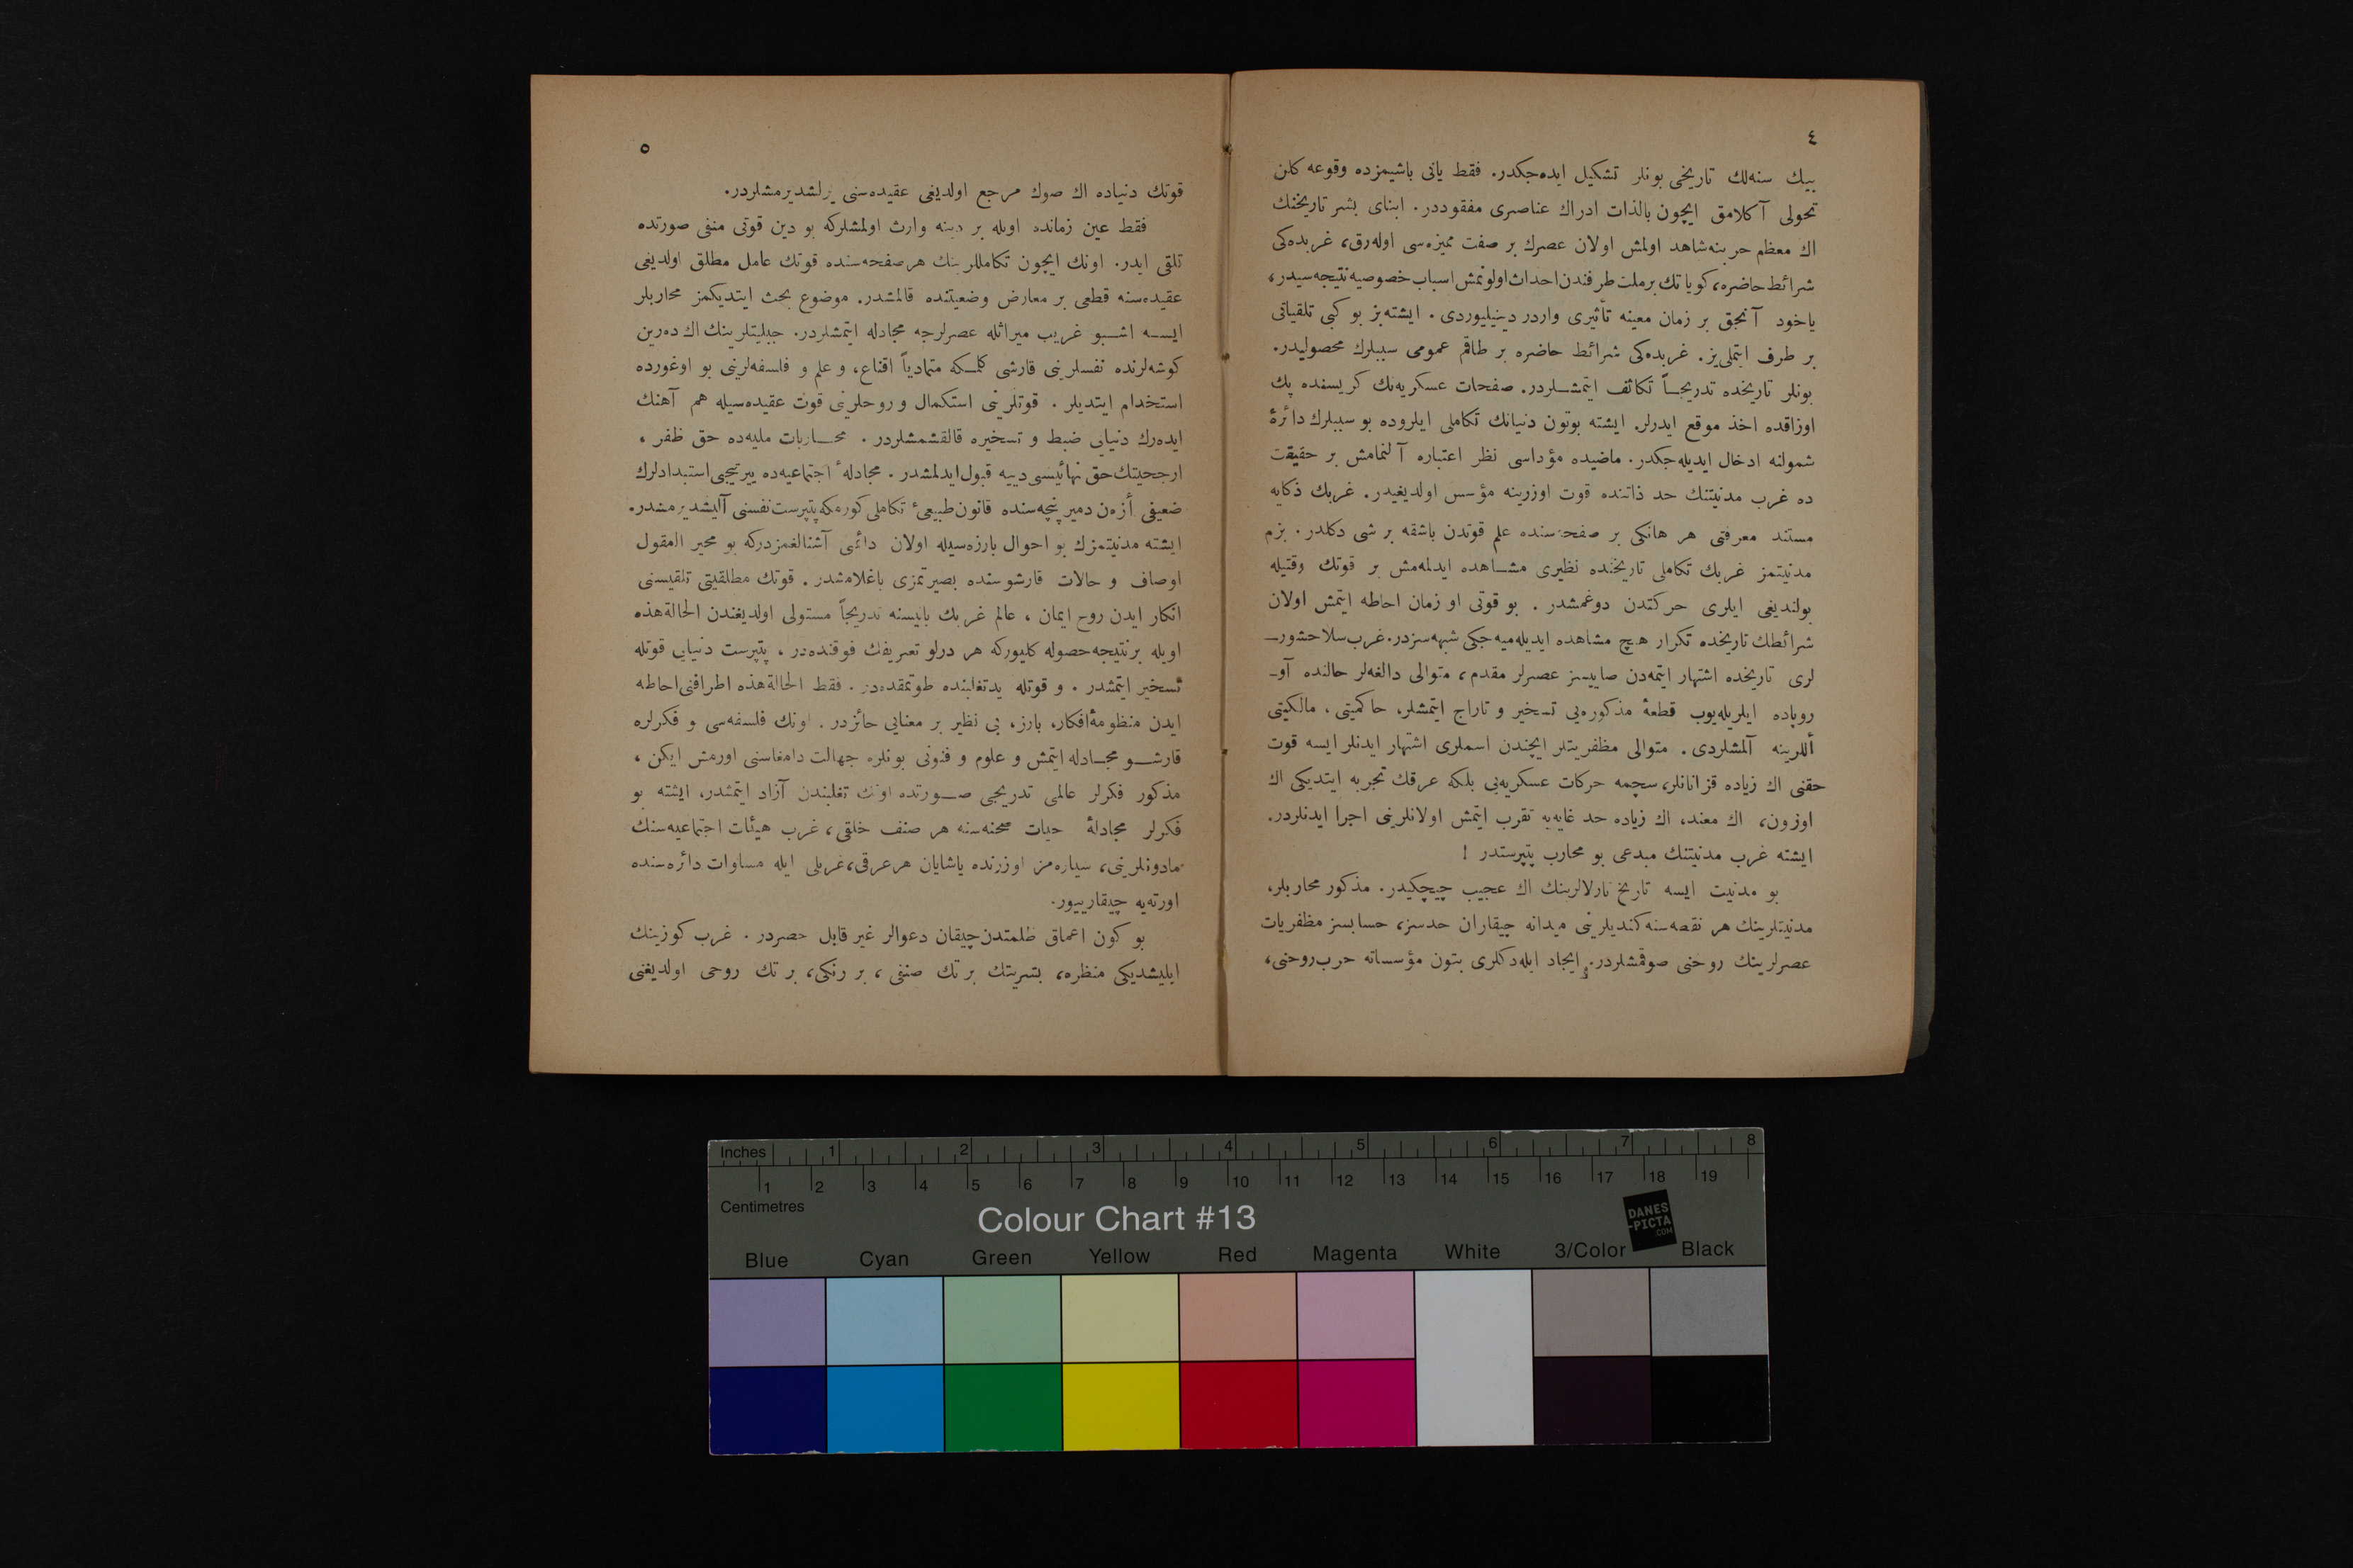 ٤
بيك سنه‌لك تاريخى بونلر تشكيل ايده‌جكدر. فقط يانى باشيمزده وقوعه كلن
تحولى آكلامق ايچون بالذات ادراك عناصرى مفقوددر. ابناى بشر تاريخنك
اك معظم حربنه شاهد اولمش اولان عصرك بر صفت مميزه‌سى اوله‌رق، غربده‌كى
شرائط حاضره، كويا تك بر ملت طرفندن احداث اولونمش اسباب خصوصيه نتيجه‌سيدر،
ياخود آنجق بر زمان معينه تأثيرى واردر دينيليوردى. ايشته بز بو كبى تلقياتى
بر طرف ايتملى‌يز. غربده‌كى شرائط حاضره بر طاقم عمومى سببلرك محصوليدر.
بونلر تاريخده تدريجاً تكاثف ايتمشلردر. صفحات عسكريه‌نك كريسنده پك
اوزاقده اخذ موقع ايدرلر. ايشته بوتون دنيانك تكاملى ايلروده بو سببلرك دائرۀ
شمولنه ادخال ايديله‌جكدر. ماضيده مؤداسى نظر اعتباره آلنمامش بر حقيقت
ده غرب مدنيتنك حد ذاتنده قوت اوزرينه مؤسس اولديغيدر. غربك ذكايه
مستند معرفتى هر هانكى بر صفحه‌سنده علم قوتدن باشقه بر شى دكلدر. بزم
مدنيتمز غربك تكاملى تاريخنده نظيرى مشاهده ايدلمه‌مش بر قوتك وقتيله
بولنديغى ايلرى حركتدن دوغمشدر. بو قوتى او زمان احاطه ايتمش اولان
شرائطك تاريخده تكرار هيچ مشاهده ايديله‌ميه‌جكى شبهه‌سزدر. غرب سلاحشور-
لرى تاريخده اشتهار ايتمه‌دن صاييسز عصرلر مقدم، متوالى دالغه‌لر حالنده آو-
روپاده ايلريله‌يوب قطعۀ مذكوره‌يى تسخير و تاراج ايتمشلر، حاكميتى، مالكيتى
أللرينه آلمشلردى. متوالى مظفريتلر ايچندن اسملرى اشتهار ايدنلر ايسه قوت
حقنى اك زياده قزانانلر، سچمه حركات عسكريه‌يى بلكه عرقك تجربه ايتديكى اك
اوزون، اك معند، اك زياده حد غايه‌يه تقرب ايتمش اولانلرينى اجرا ايدنلردر.
ايشته غرب مدنيتنك مبدعى بو محارب پتپرستدر !
بو مدنيت ايسه تاريخ تارلالرينك اك عجيب چيچكيدر. مذكور محاربلر،
مدنيتلرينك هر نقطه‌سنه كنديلرينى ميدانه چيقاران حدسز، حسابسز مظفريات
عصرلرينك روحنى صوقمشلردر. ايجاد ايله‌دكلرى بتون مؤسساته حرب روحنى،
٥
قوتك دنياده اك صوك مرجع اولديغى عقيده‌سنى يرلشديرمشلردر.
فقط عين زمانده اويله بر دينه وارث اولمشلركه بو دين قوتى منفى صورتده
تلقى ايدر. اونك ايچون تكامللرينك هر صفحه‌سنده قوتك عامل مطلق اولديغى
عقيده‌سنه قطعى بر معارض وضعيتنده قالمشدر. موضوع بحث ايتديكمز محاربلر
ايسه اشبو غريب ميراثله عصرلرجه مجادله ايتمشلردر. جبليتلرينك اك ده‌رين
كوشه‌لرنده نفسلرينى قارشى كلمكه متمادياً اقناع، و علم و فلسفه‌لرينى بو اوغورده
استخدام ايتديلر. قوتلرينى استكمال و روحلرينى قوت عقيده‌سيله هم آهنك
ايده‌رك دنيايى ضبط و تسخيره قالقشمشلردر. محاربات مليه‌ده حق ظفر،
ارجحيتك حق نهائيسى دييه قبول ايدلمشدر. مجادلۀ اجتماعيه‌ده ييرتيجى استبدادلرك
ضعيفى أزه‌ن دمير پنچه‌سنده قانون طبيعئ تكاملى كورمكه پتپرست نفسنى آليشديرمشدر.
ايشته مدنيتمزك بو احوال بارزه‌سيله اولان دائمى آشنالغمزدركه بو محير العقول
اوصاف و حالات قارشوسنده بصيرتمزى باغلامشدر. قوتك مطلقيتى تلقيسنى
انكار ايدن روح ايمان، عالم غربك بابيسنه تدريجاً مستولى اولديغندن الحالة‌هذه
اويله بر نتيجه حصوله كليوركه هر درلو تعريفك فوقنده‌در، پتپرست دنيايى قوتله
تسخير ايتمشدر. و قوتله يد تغلبنده طوتمقده‌در. فقط الحالة‌هذه اطرافنى احاطه
ايدن منظومۀ افكار، بارز، بى نظير بر معنايى حائزدر. اونك فلسفه‌سى و فكرلره
قارشو مجادله ايتمش و علوم و فنونى بونلره جهالت دامغاسنى اورمش ايكن،
مذكور فكرلر عالمى تدريجى صورتده اونك تغلبندن آزاد ايتمشدر، ايشته بو
فكرلر مجادلۀ حيات صحنه‌سنه هر صنف خلقى، غرب هيئات اجتماعيه‌سنك
مادونلرينى، سياره‌مز اوزرنده ياشايان هر عرقى، غربلى ايله مساوات دائره‌سنده
اورته‌يه چيقارييور.
بو كون اعماق ظلمتدن چيقان دعوالر غير قابل حصردر. غرب كوزينك
ايليشديكى منظره، بشريتك بر تك صنفى، بر رنكى، بر تك روحى اولديغنى
Inches 1 2 3 4 5 6 7 8
1 2 3 4 5 6 7 8 9 10 11 12 13 14 15 16 17 18 19
Centimetres
Colour Chart #13
DANES
-PICTA
.COM
Blue Cyan Green Yellow Red Magenta White 3/Color Black